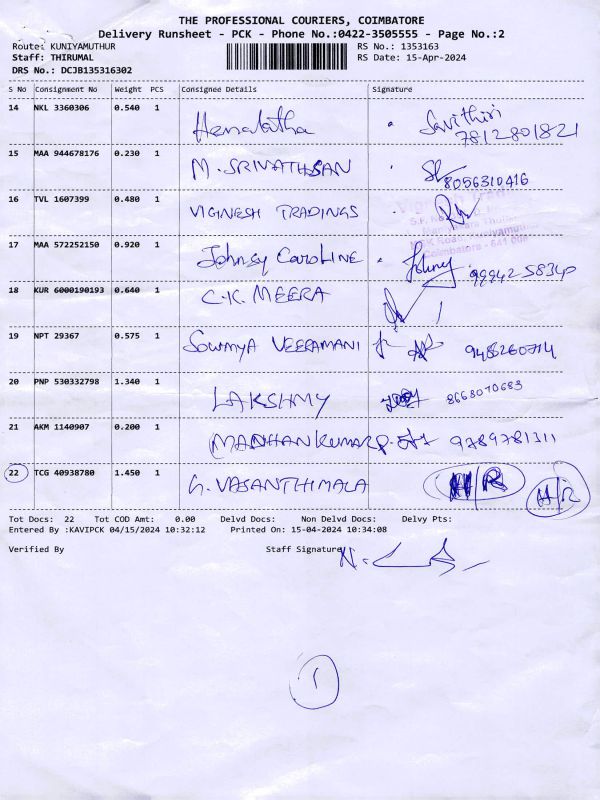 THE PROFESSIONAL COURIERS, COIMBATORE
Delivery Runsheet - PCK - Phone No.:0422-3505555 - Page No.:2
Route: KUNIYAMUTHUR RS No.: 1353163
Staff: THIRUMAL RS Date: 15-Apr-2024
DRS No.: DCJB135316302
S No Consignment No Weight PCS Consignee Details Signature
14 NKL 3360306 0.540 1 Hemalatha Savithiri
7812801821
15 MAA 944678176 0.230 1 M. SRIVATHSAN
8056310416
16 TVL 1607399 0.480 1 VIGINESH TRADINGS
17 MAA 572252150 0.920 1 Johnsy CAROLINE Johny 9994258340
18 KUR 6000190193 0.640 1 C.K. MEERA
19 NPT 29367 0.575 1 SOWMYA VEERAMANI 9486260714
20 PNP 530332798 1.340 1 LAKSHMY 8668070683
21 AKM 1140907 0.200 1 MADHANKUMAR P. 9789781311
22 TCG 40938780 1.450 1 G. VASANTHIMALA H/R H/R
Tot Docs: 22 Tot COD Amt: 0.00 Delvd Docs: Non Delvd Docs: Delvy Pts:
Entered By :KAVIPCK 04/15/2024 10:32:12 Printed On: 15-04-2024 10:34:08
Verified By Staff Signature
1